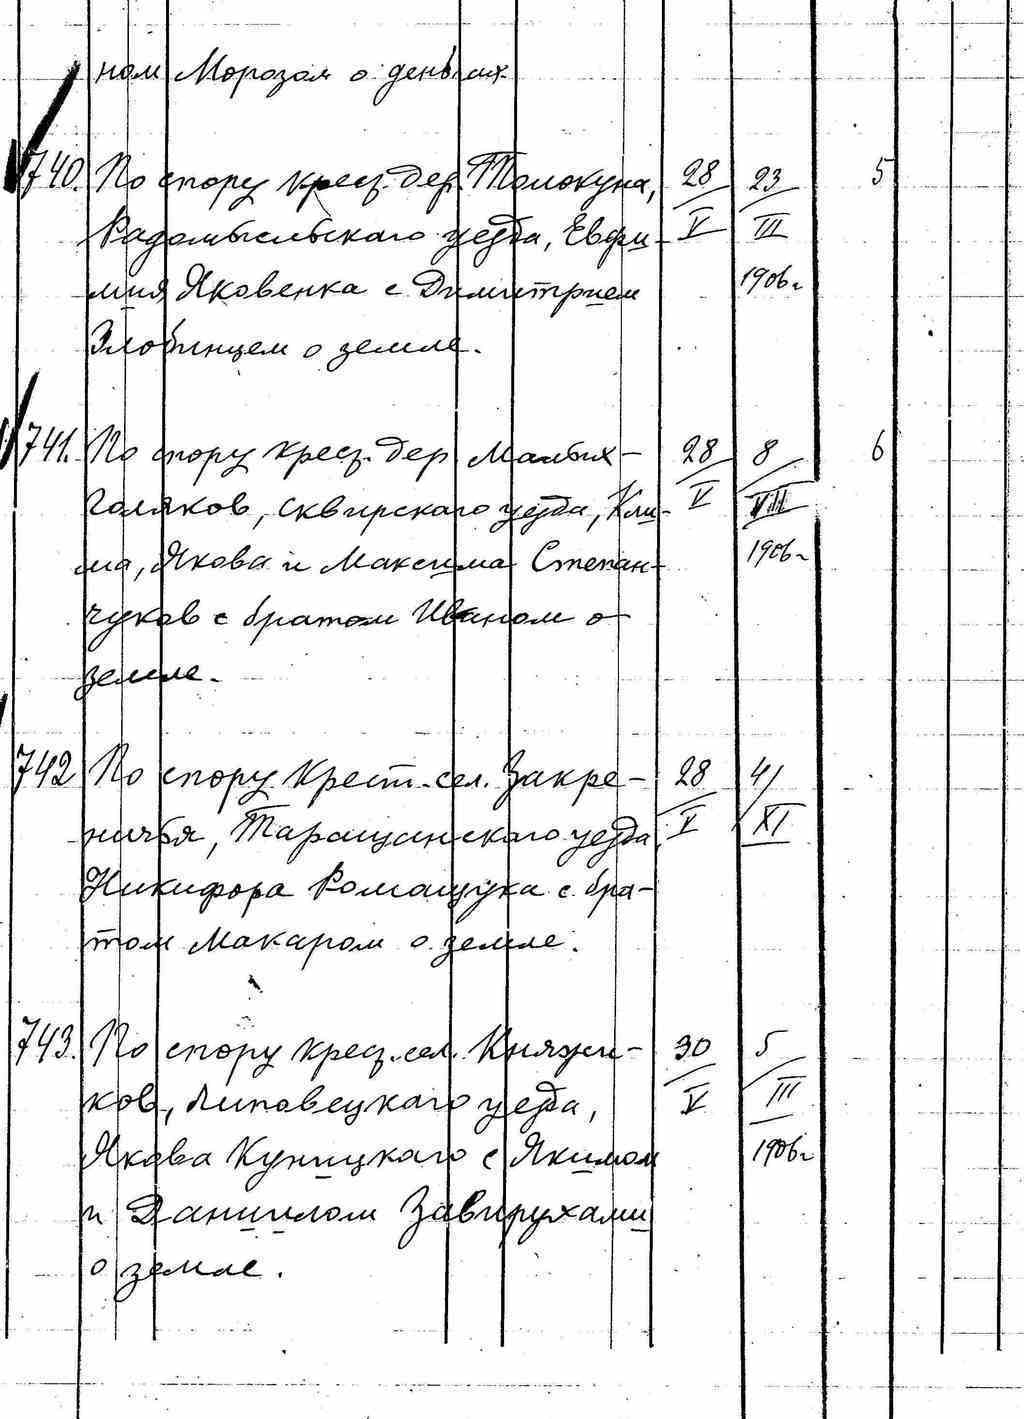 ном Морозом о деньгах
740. По спору крест. дер. Толокуна, 28/V 23/III 1906 г. 5
Радомысльскаго уезда, Евфи-
мия Яковенка с Димитрием
Злобинцем о земле.
741. По спору крест. дер. Малых- 28/V 8/VIII 1906 г. 6
голяков, сквирскаго уезда, Кли-
ма, Якова и Максима Степан-
чуков с братом Иваном о
земле.
742 По спору Крест. сел. Закре- 28/V 4/XI
ничья, Таращанскаго уезда
Никифора Ромащука с бра-
том Макаром о земле.
743. По спору крест. сел. Княжи- 30/V 5/III 1906 г.
ков, Липовецкаго уезда,
Якова Куницкаго с Якимом
и Даниилом Завирухами
о земле.